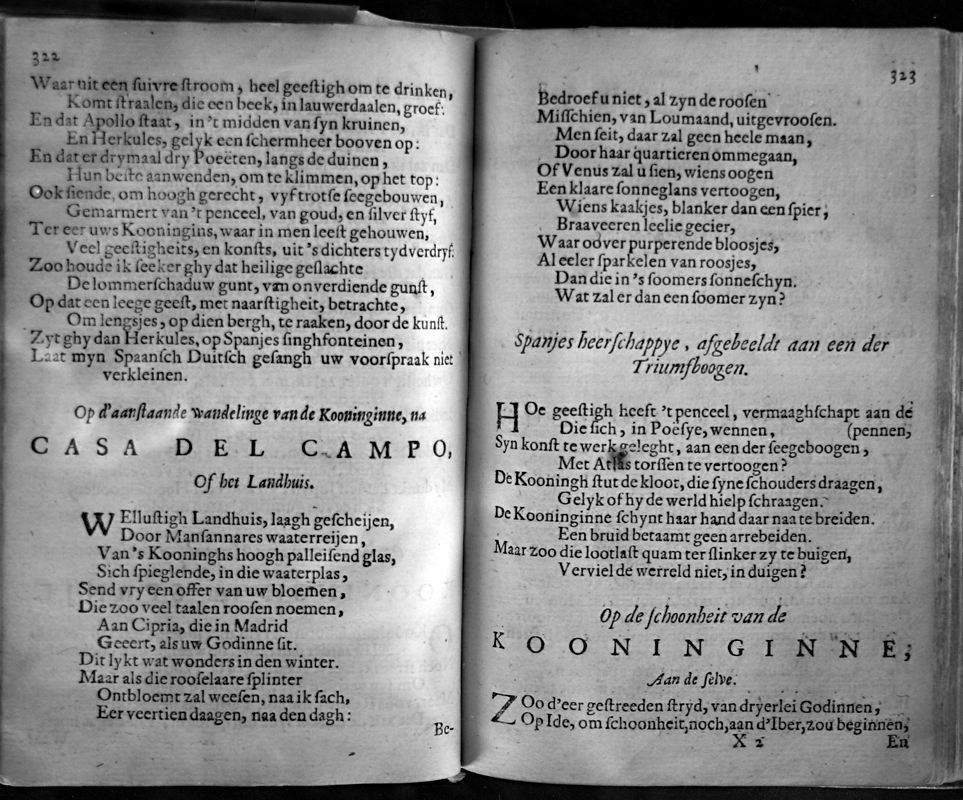 322
Waar uit een suivre stroom, heel geestigh om te drinken,
Komt straalen, die een beek, in lauwerdaalen, groef:
En dat Apollo staat, in 't midden van syn kruinen,
En Herkules, gelyk een schermheer booven op:
En dat er drymaal dry Poeëten, langs de duinen,
Hun beste aanwenden, om te klimmen, op het top:
Ook siende, om hoogh gerecht, vyf trotse seegebouwen,
Gemarmert van 't penceel, van goud, en silver styf,
Ter eer uws Kooningins, waar in men leest gehouwen,
Veel geestigheits, en konsts, uit 's dichters tydverdryf:
Zoo houde ik seeker ghy dat heilige geslachte
De lommerschaduw gunt, van onverdiende gunst,
Op dat een leege geest, met naarstigheit, betrachte,
Om lengsjes, op dien bergh, te raaken, door de kunst.
Zyt ghy dan Herkules, op Spanjes singhfonteinen,
Laat myn Spaansch Duitsch gesangh uw voorspraak niet
verkleinen.
Op d'aanstaande wandelinge van de Kooninginne, na
CASA DEL CAMPO,
Of het Landhuis.
WElluftigh Landhuis, laagh gescheijen,
Door Mansannares waaterreijen,
Van 's Kooninghs hoogh palleisend glas,
Sich spieglende, in die waaterplas,
Send vry een offer van uw bloemen,
Die zoo veel taalen roosen noemen,
Aan Cipria, die in Madrid
Geeert, als uw Godinne sit.
Dit lykt wat wonders in den winter.
Maar als die rooselaare splinter
Ontbloemt zal weesen, naa ik sach,
Eer veertien daagen, naa den dagh:
Be-
323
Bedroef u niet, al zyn de roosen
Misschien, van Loumaand, uitgevroosen.
Men seit, daar zal geen heele maan,
Door haar quartieren ommegaan,
Of Venus zal u sien, wiens oogen
Een klaare sonneglans vertoogen,
Wiens kaakjes, blanker dan een spier,
Braaveeren leelie gecier,
Waar oover purperende bloosjes,
Al eeler sparkelen van roosjes,
Dan die in 's soomers sonneschyn.
Wat zal er dan een soomer zyn?
Spanjes heerschappye, afgebeeldt aan een der
Triumfboogen.
HOe geestigh heeft 't penceel, vermaaghschapt aan de
Die sich, in Poësye, wennen, (pennen,
Syn konst te werk geleght, aan een der seegeboogen,
Met Atlas torssen te vertoogen?
De Kooningh stut de kloot, die syne schouders draagen,
Gelyk of hy de werld hielp schraagen.
De Kooninginne schynt haar hand daar naa te breiden.
Een bruid betaamt geen arrebeiden.
Maar zoo die lootlast quam ter slinker zy te buigen,
Verviel de werreld niet, in duigen?
Op de schoonheit van de
KOONINGINNE,
Aan de selve.
ZOo d'eer gestreeden stryd, van dryerlei Godinnen,
Op Ide, om schoonheit, noch, aan d'Iber, zou beginnen,
X 2 En